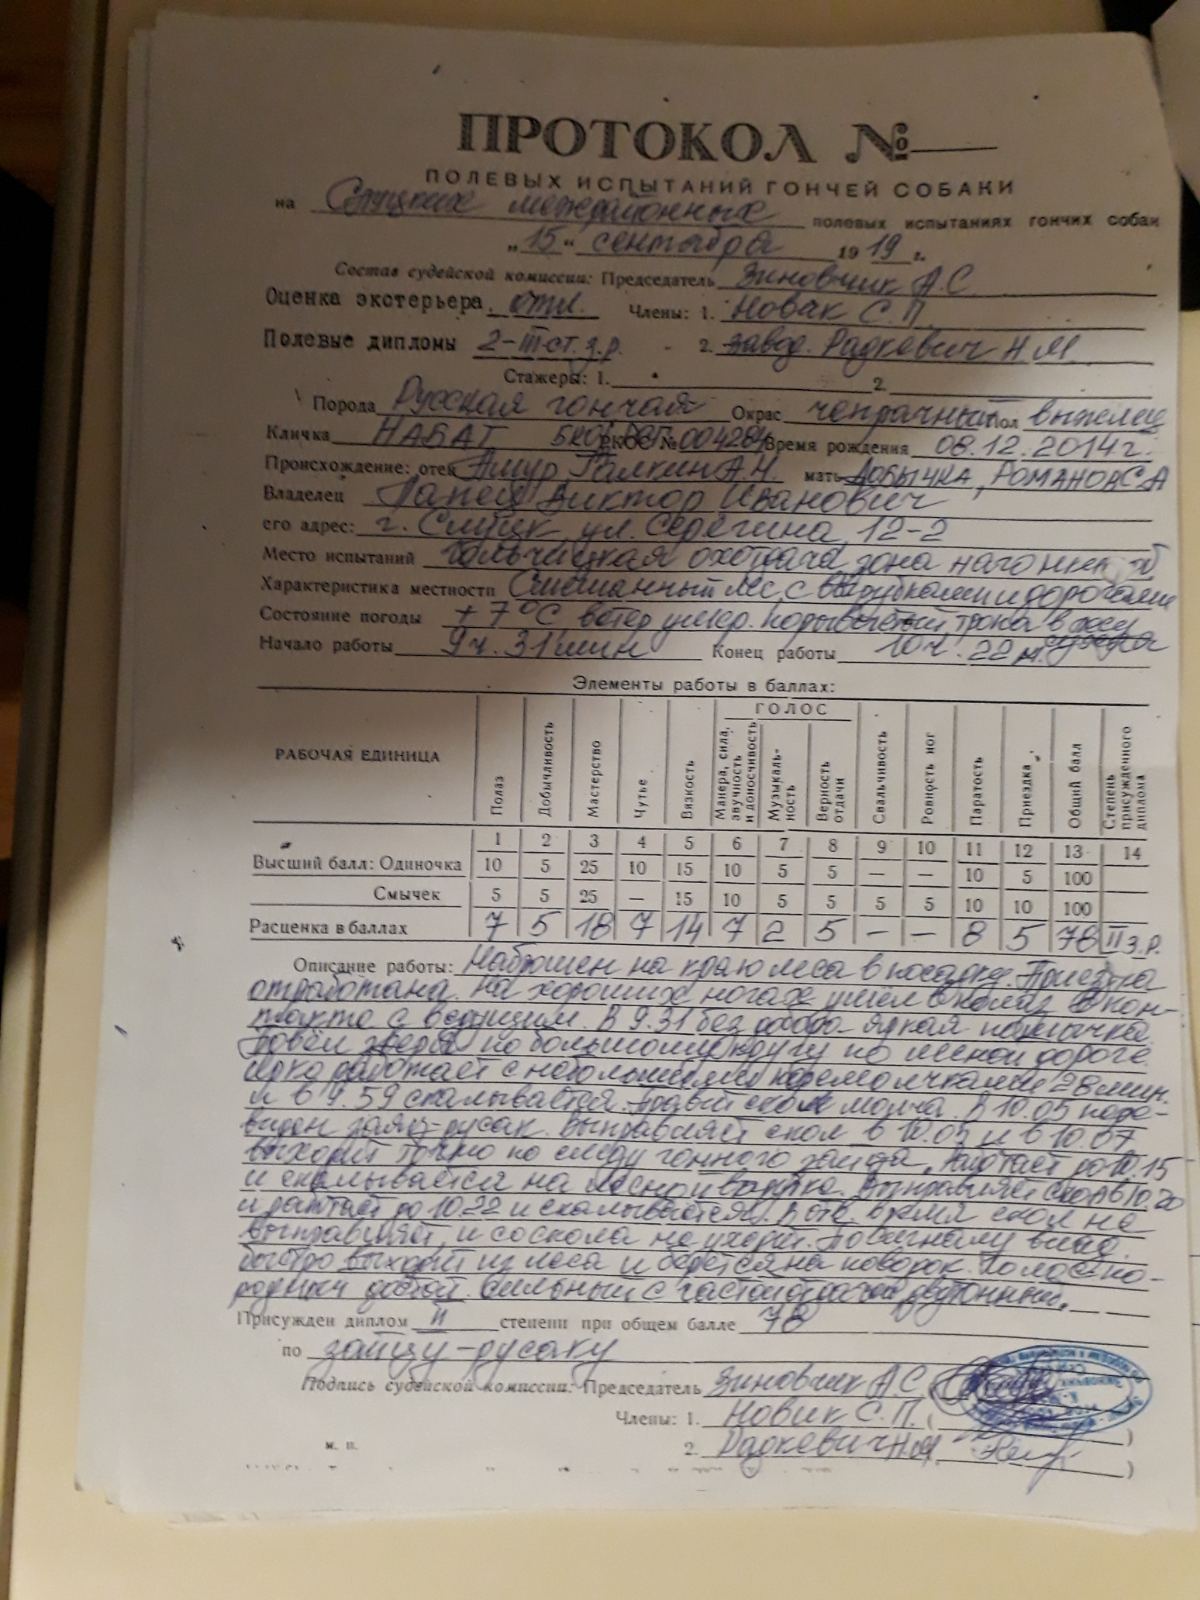 ПРОТОКОЛ №
ПОЛЕВЫХ ИСПЫТАНИЙ ГОНЧЕЙ СОБАКИ
на Слуцких межрайонных полевых испытаниях гончих собак
„15“ сентября 1919 г.
Состав судейской комиссии: Председатель Зиновчик А.С
Оценка экстерьера отл. Члены: 1. Новик С.П.
Полевые дипломы 2-III ст. з.р. 2. Завод. Радкевич Н.М
Стажеры: 1. 2.
Порода Русская гончая Окрас чепрачный Пол выжлец
Кличка НАБАТ № 004284 Время рождения 08.12.2014 г.
Происхождение: отец Амур Галкин А.Н. мать ДОБЫЧКА, РОМАНОВ С.А
Владелец Виктор Иванович
его адрес: г. Слуцк, ул. Серёгина, 12-2
Место испытаний охотничья зона нагонки
Характеристика местности Смешанный лес с вырубками и дорогами
Состояние погоды +7°C ветер умер. порывистый трава в
Начало работы 9 ч. 31 мин Конец работы 10 ч. 22 м.
Элементы работы в баллах:
ГОЛОС
РАБОЧАЯ ЕДИНИЦА Полаз Добычливость Мастерство Чутье Вязкость Манера, сила, звучность и доносчивость Музыкальность Верность отдачи Свальчивость Ровность ног Паратость Приездка Общий балл Степень присужденного диплома
1 2 3 4 5 6 7 8 9 10 11 12 13 14
Высший балл: Одиночка 10 5 25 10 15 10 5 5 — — 10 5 100
Смычек 5 5 25 — 15 10 5 5 5 5 10 10 100
Расценка в баллах 7 5 18 7 14 7 2 5 — — 8 5 78 II з.р.
Описание работы: Наброшен на краю леса в посадке. Приездка
отработана. На хороших ногах ушел в полаз. В кон-
такте с ведущим. В 9.31 без добора яркая помычка.
Повёл зверя по большому кругу по лесной дороге.
Ярко работает с небольшими перемолчками 28 мин.
и в 9.59 скалывается. Правит скол молча. В 10.05 пере-
виден заяц-русак. Выправляет скол в 10.05 и в 10.07
выходит точно по следу гонного зайца, работает до 10.15
и скалывается на лесной. Выправляет скол в 10.20
и работает до 10.22 и скалывается. В отв. время скол не
выправляет, и со скола не уходит. Позывному
быстро выходит из леса и берется на поводок. Голос по-
родный. Сильный с частой отдачей двутонный.
Присужден диплом II степени при общем балле 78
по зайцу-русаку
Подпись судейской комиссии: Председатель Зиновчик А.С. (
Члены: 1. Новик С.П. ( )
м. п. 2. Радкевич Н.М. )